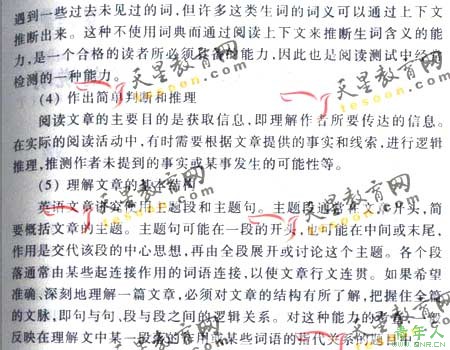 遇到一些过去未见过的词,但许多这类生词的词义可以通过上下文
推断出来。这种不使用词典而通过阅读上下文来推断生词含义的能
力,是一个合格的读者所必须具备的能力,因此也是阅读测试中经常
检测的一种能力。
(4) 作出简单判断和推理
阅读文章的主要目的是获取信息,即理解作者所要传达的信息。
在实际的阅读活动中,有时需要根据文章提供的事实和线索,进行逻辑
推理,推测作者未提到的事实或某事发生的可能性等。
(5) 理解文章的基本结构
英语文章讲究使用主题段和主题句。主题段通常在文章开头,简
要概括文章的主题。主题句可能在一段的开头,也可能在中间或末尾,
作用是交代该段的中心思想,再由全段展开或讨论这个主题。各个段
落通常由某些起连接作用的词语连接,以使文章行文连贯。如果希望
准确、深刻地理解一篇文章,必须对文章的结构有所了解,把握住全篇
的文脉,即句与句、段与段之间的逻辑关系。对这种能力的考查,往
反映在理解文中某一段落的作用或某些词语的指代关系的题目中
天星教育网
tesoon.com
天星教育网
tesoon.com
天星教育网
tesoon.com
天星教育网
tesoon.com
青年人
WWW.QNR.CN